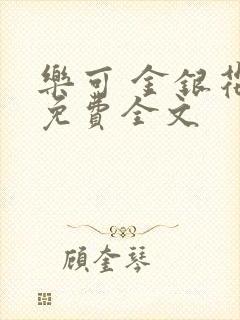 樂可 金銀花
免費全文
顧奎琴